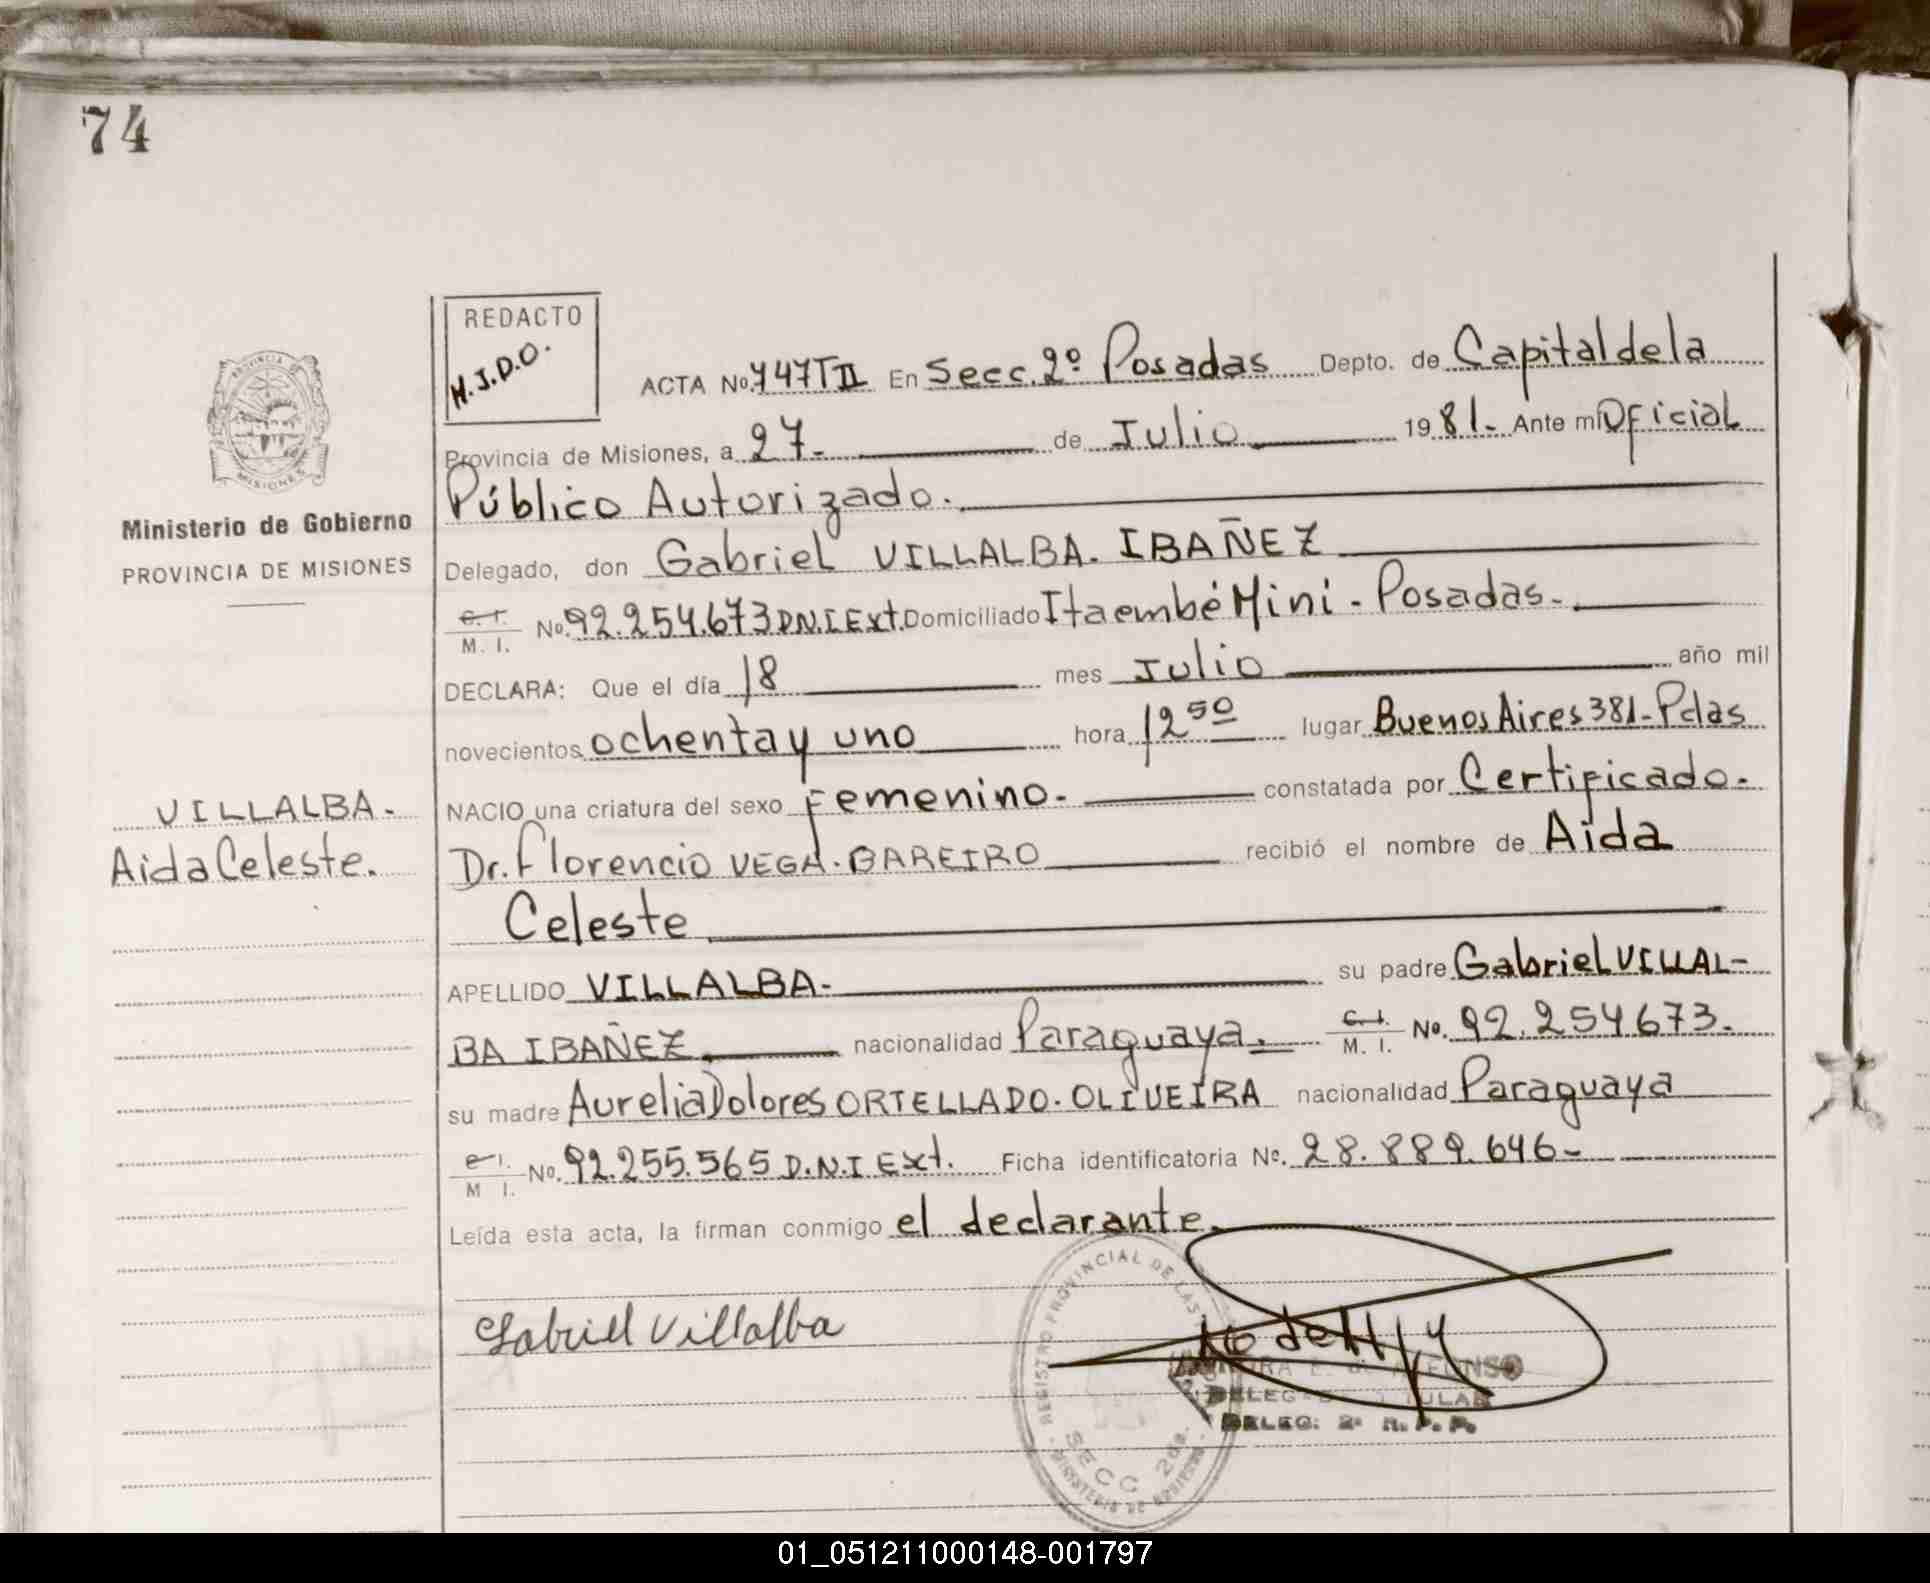 74
REDACTO
H.J.D.O.
ACTA No. 747 T II En Secc. 2º Posadas Depto. de Capital de la
Provincia de Misiones, a 27.- de Julio 1981.- Ante mi Oficial
Público Autorizado.
Ministerio de Gobierno
PROVINCIA DE MISIONES
Delegado, don Gabriel VILLALBA. IBAÑEZ
C. I. M. I. No. 92.254.673 D.N.I Ext. Domiciliado Itaembé Mini - Posadas.-
DECLARA: Que el día 18 mes Julio año mil
novecientos ochenta y uno hora 12 50 lugar Buenos Aires 381 - Pdas
NACIO una criatura del sexo Femenino.- constatada por Certificado.-
VILLALBA.-
Aida Celeste.
Dr. Florencio VEGA. BAREIRO recibió el nombre de Aida
Celeste
APELLIDO VILLALBA.- su padre Gabriel VILLAL-
BA IBAÑEZ nacionalidad Paraguaya. C. I. M. I. No. 92.254673.-
su madre Aurelia Dolores ORTELLADO. OLIVEIRA nacionalidad Paraguaya
C. I. M I. No. 92.255.565 D.N.I Ext. Ficha identificatoria No. 28.889.646-
Leída esta acta, la firman conmigo el declarante.
Gabriel Villalba
REGISTRO PROVINCIAL DE LAS
SECC. 2da.
MINISTERIO DE GOBIERNO
DELEG. 2ª R. P. P.
01_051211000148-001797